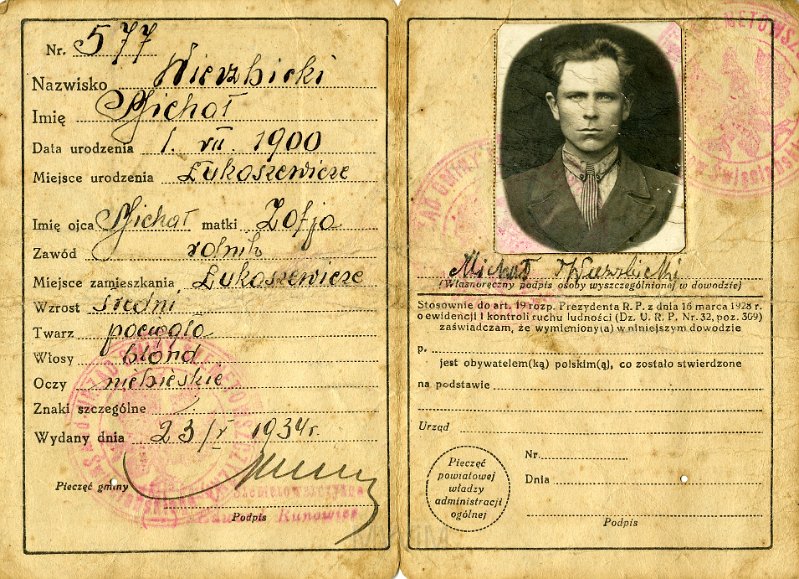 Nr. 577
Nazwisko Wierzbicki
Imię Michał
Data urodzenia 1. VII. 1900
Miejsce urodzenia Łukaszewicze
Imię ojca Michał matki Zofja
Zawód rolnik
Miejsce zamieszkania Łukaszewicze
Wzrost średni
Twarz pociągła
Włosy blond
Oczy niebieskie
Znaki szczególne
Wydany dnia 23/V 1934 r.
Pieczęć gminy
Podpis
Michał Wierzbicki
(Własnoręczny podpis osoby wyszczególnionej w dowodzie)
Stosownie do art. 19 rozp. Prezydenta R. P. z dnia 16 marca 1928 r.
o ewidencji i kontroli ruchu ludności (Dz. U. R. P. Nr. 32, poz. 309)
zaświadczam, że wymieniony(a) w niniejszym dowodzie
p.
jest obywatelem(ką) polskim(ą), co zostało stwierdzone
na podstawie
Urząd
Nr.
Dnia
Pieczęć
powiatowej
władzy
administracji
ogólnej
Podpis